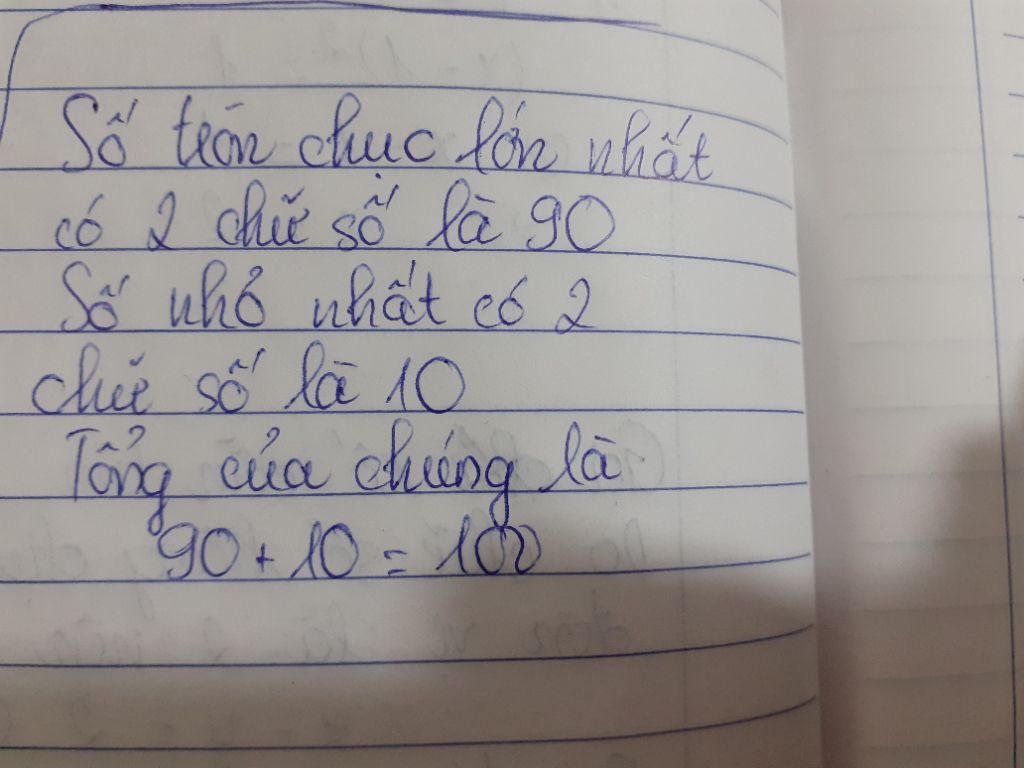 Số tròn chục lớn nhất
có 2 chữ số là 90
Số nhỏ nhất có 2
chữ số là 10
Tổng của chúng là
90 + 10 = 100